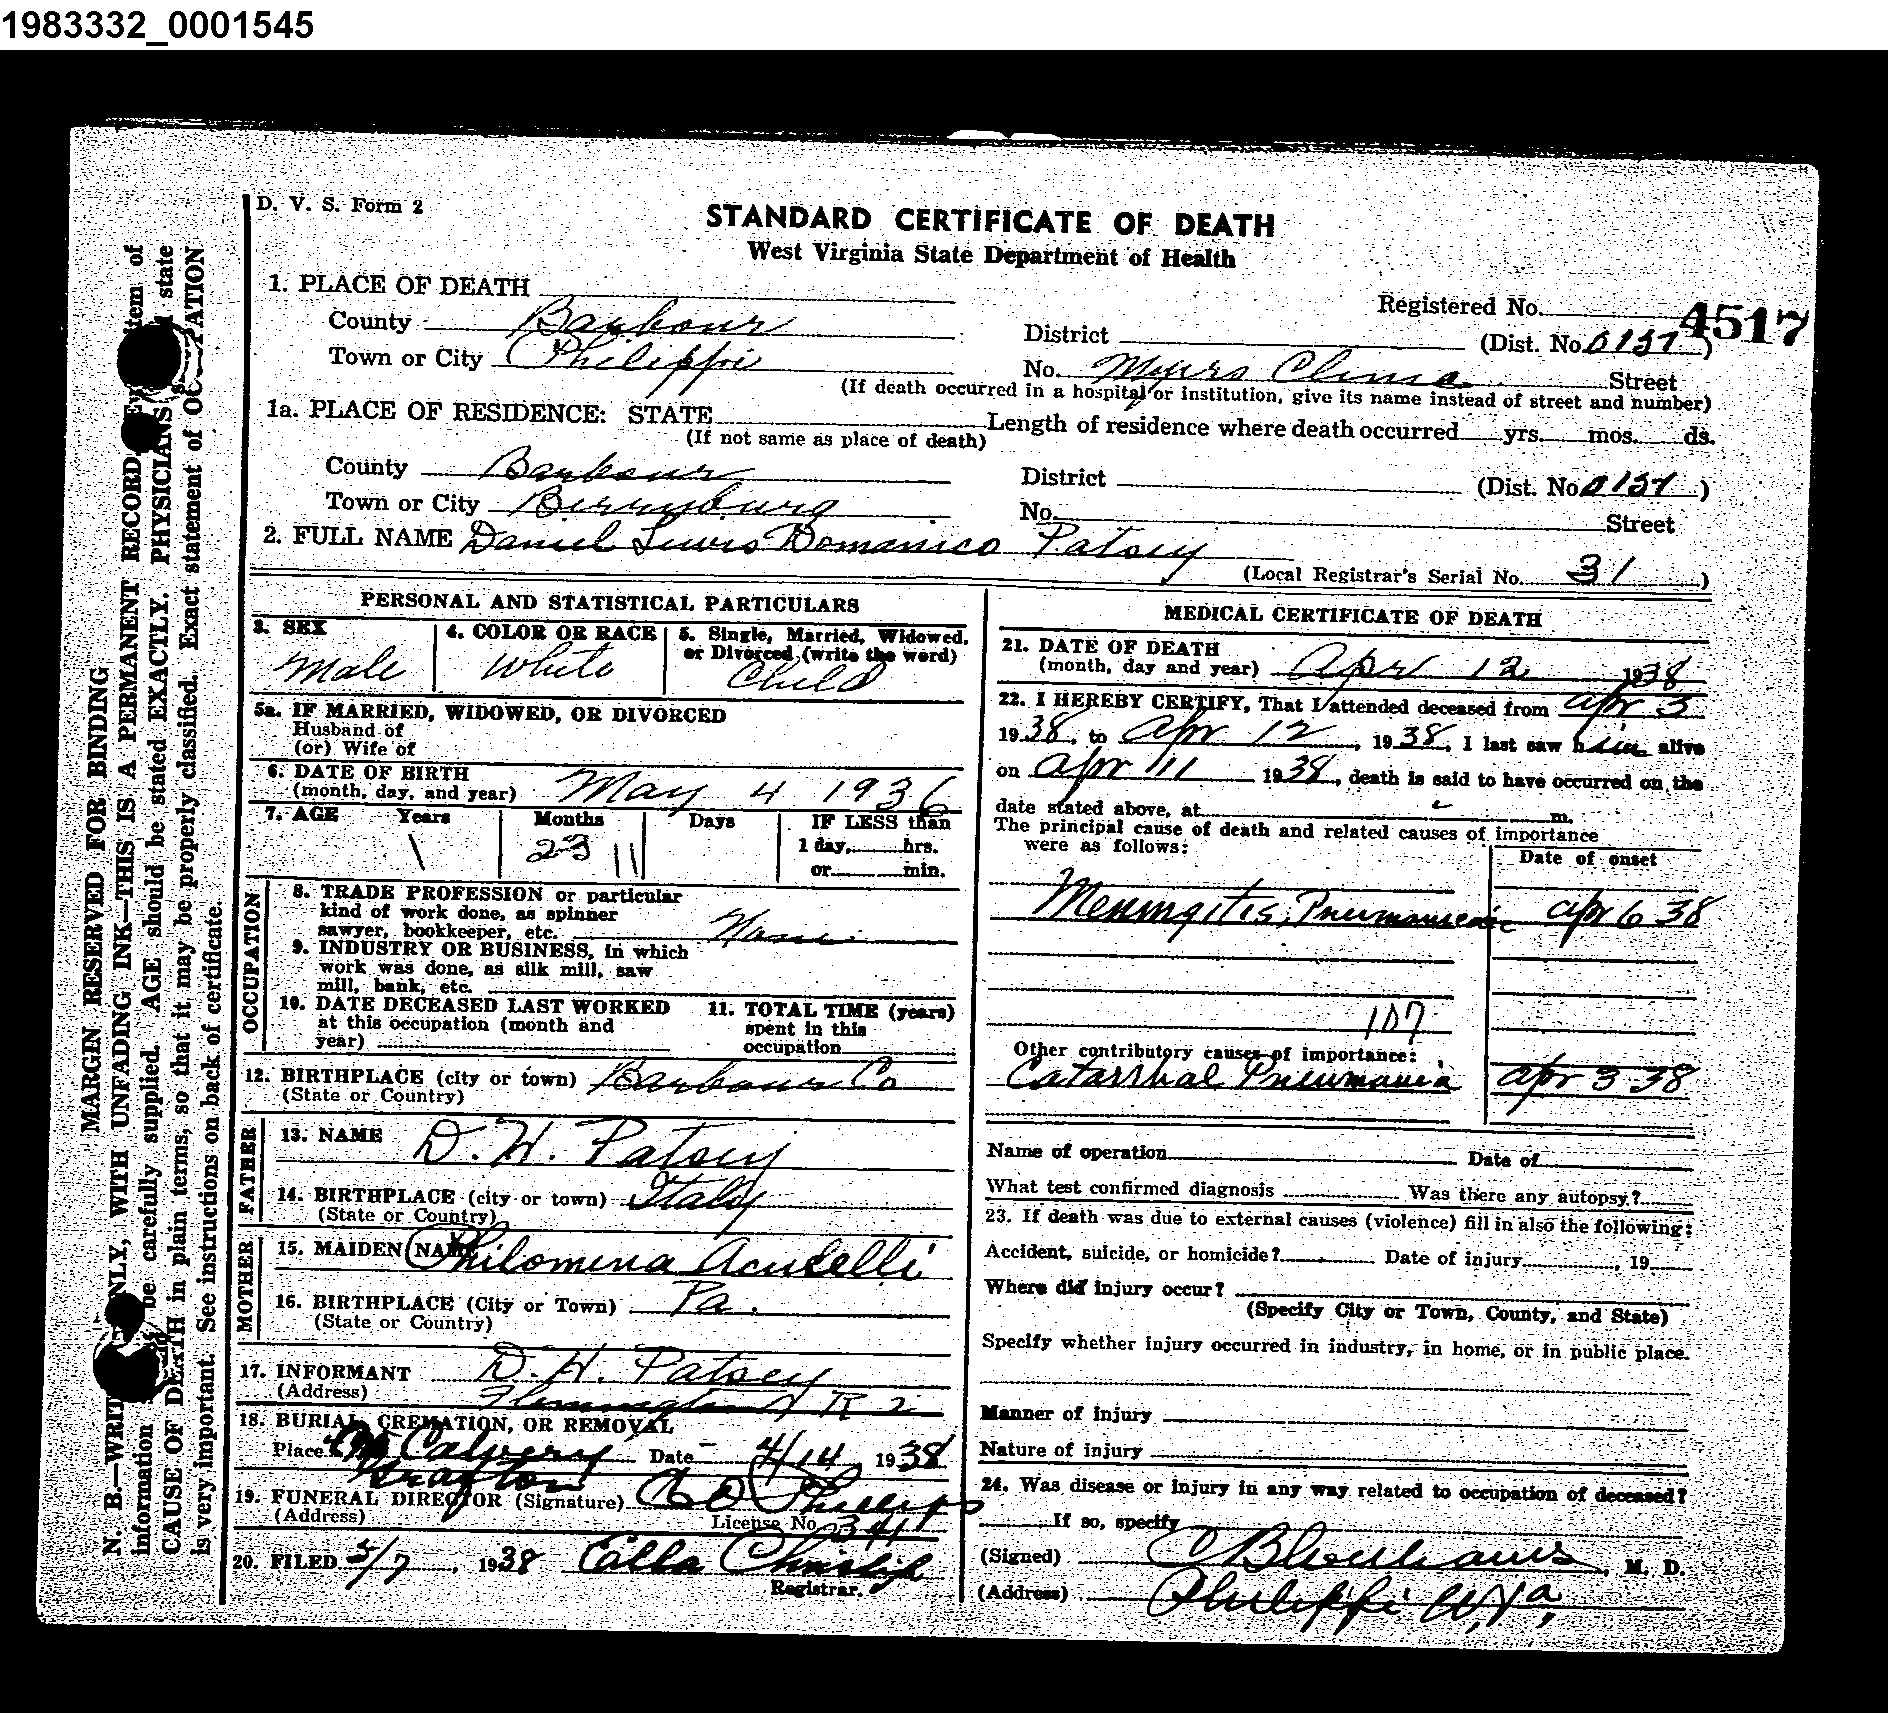 1983332_0001545
D. V. S. Form 2
STANDARD CERTIFICATE OF DEATH
West Virginia State Department of Health
1. PLACE OF DEATH
Registered No. 4517
County Barbour
District (Dist. No. 0137)
Town or City Philippi
No. Myers Clinic Street
(If death occurred in a hospital or institution, give its name instead of street and number)
1a. PLACE OF RESIDENCE: STATE
Length of residence where death occurred yrs. mos. ds.
(If not same as place of death)
County Barbour
District (Dist. No. 0137)
Town or City Berryburg
No. Street
2. FULL NAME Daniel Lewis Domanico Patsey
(Local Registrar's Serial No. 31)
PERSONAL AND STATISTICAL PARTICULARS
3. SEX Male
4. COLOR OR RACE White
5. Single, Married, Widowed, or Divorced (write the word) Child
5a. IF MARRIED, WIDOWED, OR DIVORCED
Husband of
(or) Wife of
6. DATE OF BIRTH
(month, day, and year) May 4 1936
7. AGE Years Months Days IF LESS than
1 23 11 1 day, hrs.
or min.
OCCUPATION
8. TRADE PROFESSION or particular
kind of work done, as spinner
sawyer, bookkeeper, etc. None
9. INDUSTRY OR BUSINESS, in which
work was done, as silk mill, saw
mill, bank, etc.
10. DATE DECEASED LAST WORKED
at this occupation (month and
year)
11. TOTAL TIME (years)
spent in this
occupation
12. BIRTHPLACE (city or town) Barbour Co
(State or Country)
FATHER
13. NAME D. H. Patsey
14. BIRTHPLACE (city or town) Italy
(State or Country)
MOTHER
15. MAIDEN NAME Philomena
16. BIRTHPLACE (City or Town) Pa.
(State or Country)
17. INFORMANT D. H. Patsey
(Address) Flemington R 2
18. BURIAL, CREMATION, OR REMOVAL
Place Mt Calvery Date 4/14 1938
Grafton
19. FUNERAL DIRECTOR (Signature) Phillips
(Address) License No. 341
20. FILED 5/7, 1938 Ella
Registrar.
MEDICAL CERTIFICATE OF DEATH
21. DATE OF DEATH
(month, day and year) Apr 12 1938
22. I HEREBY CERTIFY, That I attended deceased from Apr 3
1938, to Apr 12, 1938, I last saw him alive
on Apr 11 1938, death is said to have occurred on the
date stated above, at m.
The principal cause of death and related causes of importance
were as follows:
Date of onset
Meningitis, Apr 6 38
107
Other contributory causes of importance:
Catarrhal Pneumonia Apr 3 38
Name of operation Date of
What test confirmed diagnosis Was there any autopsy?
23. If death was due to external causes (violence) fill in also the following:
Accident, suicide, or homicide? Date of injury , 19
Where did injury occur?
(Specify City or Town, County, and State)
Specify whether injury occurred in industry, in home, or in public place.
Manner of injury
Nature of injury
24. Was disease or injury in any way related to occupation of deceased?
If so, specify
(Signed) , M. D.
(Address) Philippi W. Va,
MARGIN RESERVED FOR BINDING
N. B.—WRIT NLY, WITH UNFADING INK—THIS IS A PERMANENT RECORD. Ev item of
information be carefully supplied. AGE should be stated EXACTLY. PHYSICIANS state
CAUSE OF DEATH in plain terms, so that it may be properly classified. Exact statement of OC PATION
is very important. See instructions on back of certificate.